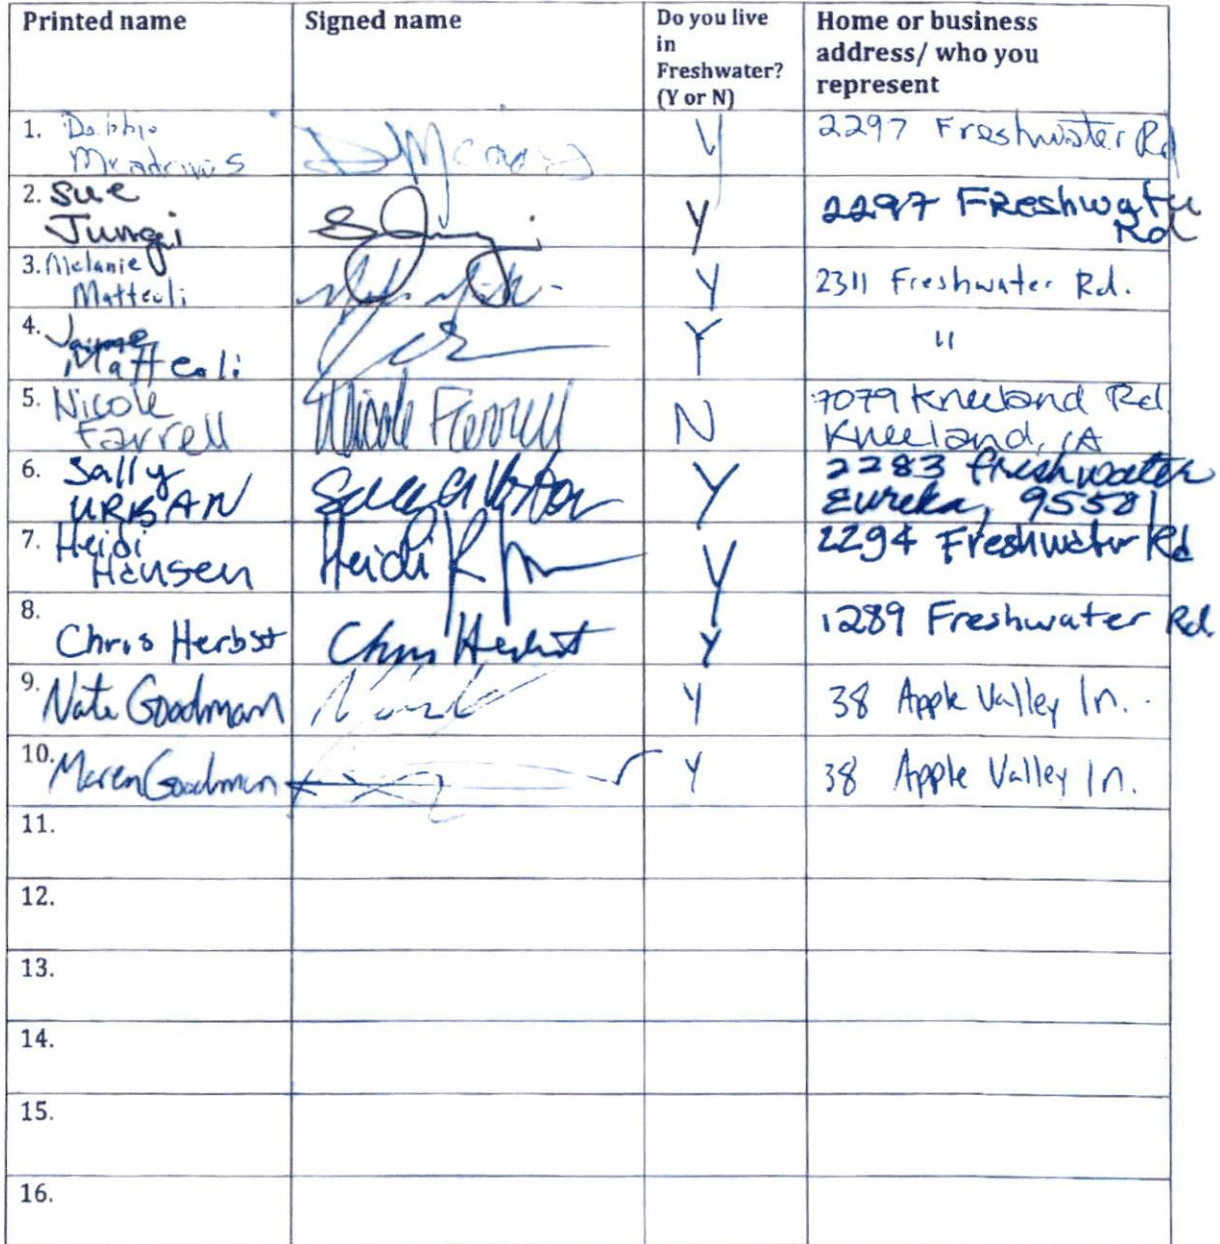 Printed name
Signed name
Do you live
in
Freshwater?
(Y or N)
Home or business
address/ who you
represent
1.
Y
2297 Freshwater Rd
2. Sue
Jungi
Y
2297 Freshwater
Rd
3. Melanie
Matteoli
Y
2311 Freshwater Rd.
4. Jaime
Matteoli
Y
"
5. Nicole
Farrell
Nicole Farrell
N
7079 Kneeland Rd
Kneeland, CA
6. Sally
URBAN
Y
2283 freshwater
Eureka, 95501
7. Heidi
Hansen
Heidi R
Y
2294 Freshwater Rd
8.
Chris Herbst
Chris Herbst
Y
1289 Freshwater Rd
9. Nate Goodman
Y
38 Apple Valley ln.
10. Maren Goodman
Y
38 Apple Valley ln.
11.
12.
13.
14.
15.
16.